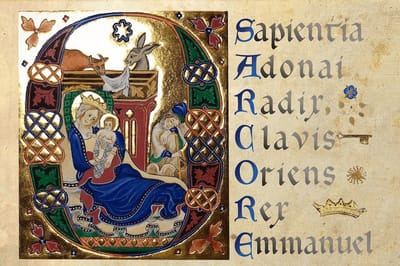 Sapientia
Adonai
Radix
Clavis
Oriens
Rex
Emmanuel